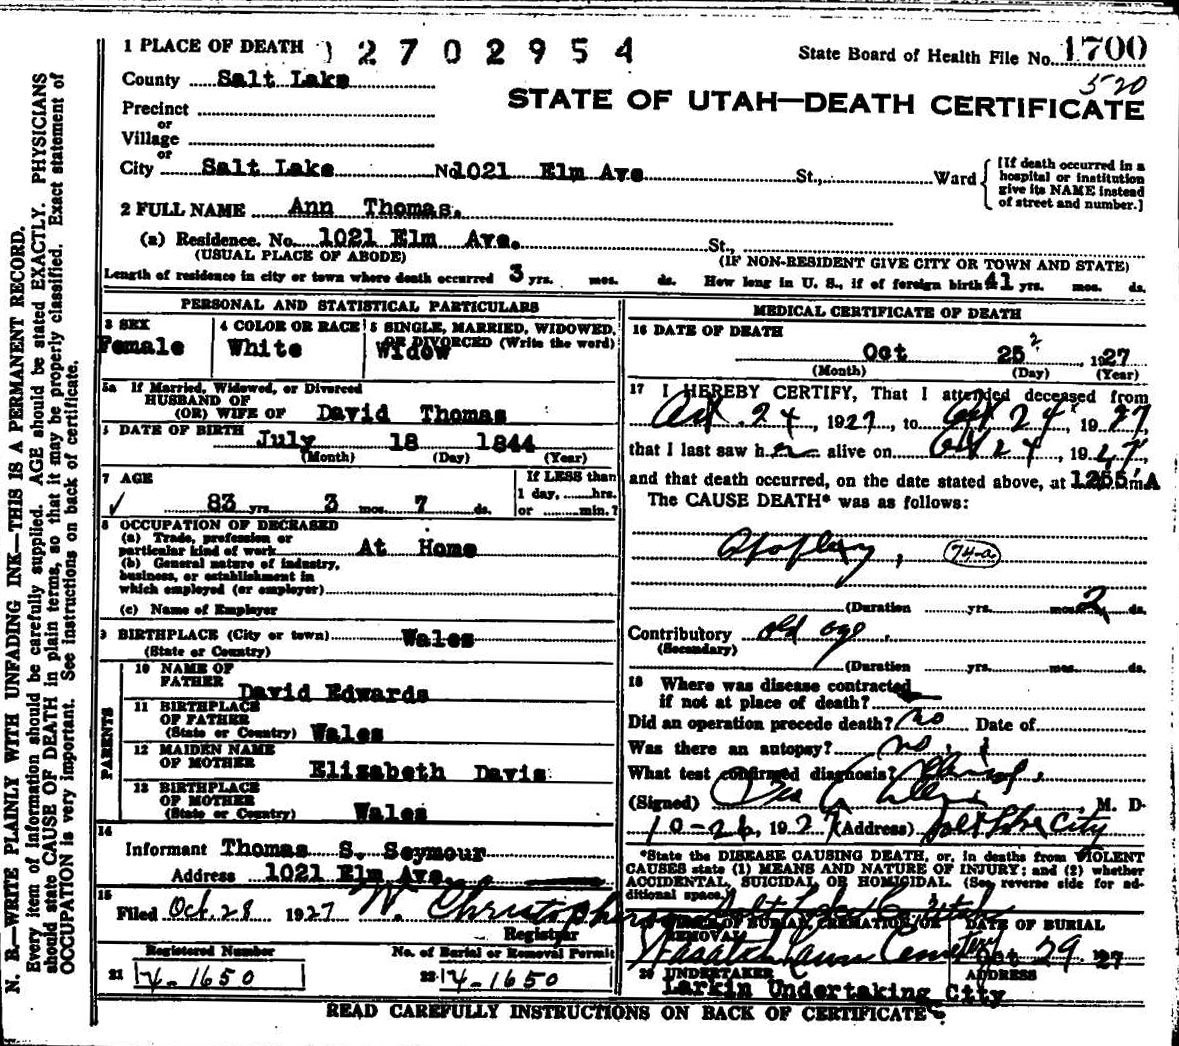 1 PLACE OF DEATH 12702954
State Board of Health File No. 1700
520
County Salt Lake
STATE OF UTAH—DEATH CERTIFICATE
Precinct
or
Village
or
City Salt Lake No. 1021 Elm Ave St., Ward
[If death occurred in a hospital or institution give its NAME instead of street and number.]
2 FULL NAME Ann Thomas.
(a) Residence. No. 1021 Elm Ave. St.,
(USUAL PLACE OF ABODE) (IF NON-RESIDENT GIVE CITY OR TOWN AND STATE)
Length of residence in city or town where death occurred 3 yrs. mos. ds. How long in U. S., if of foreign birth 41 yrs. mos. ds.
PERSONAL AND STATISTICAL PARTICULARS
3 SEX
Female
4 COLOR OR RACE
White
5 SINGLE, MARRIED, WIDOWED,
OR DIVORCED (Write the word)
Widow
5a If Married, Widowed, or Divorced
HUSBAND OF
(OR) WIFE OF David Thomas
DATE OF BIRTH July 18 1844
(Month) (Day) (Year)
7 AGE
83 yrs 3 mos 7 ds.
If LESS than
1 day, hrs.
or min.?
8 OCCUPATION OF DECEASED
(a) Trade, profession or
particular kind of work At Home
(b) General nature of industry,
business, or establishment in
which employed (or employer)
(c) Name of Employer
9 BIRTHPLACE (City or town) Wales
(State or Country)
PARENTS
10 NAME OF
FATHER David Edwards
11 BIRTHPLACE
OF FATHER
(State or Country) Wales
12 MAIDEN NAME
OF MOTHER Elizabeth Davis
13 BIRTHPLACE
OF MOTHER
(State or Country) Wales
14
Informant Thomas S. Seymour
Address 1021 Elm Ave.
15
Filed Oct. 28 1927 W. Christopherson
Registrar
Registered Number No. of Burial or Removal Permit
21 4-1650 22 4-1650
MEDICAL CERTIFICATE OF DEATH
16 DATE OF DEATH
Oct 25 2, 1927
(Month) (Day) (Year)
17 I HEREBY CERTIFY, That I attended deceased from
Oct. 24, 1927, to Oct 24, 1927,
that I last saw her alive on Oct 24, 1927,
and that death occurred, on the date stated above, at 1255 m A
The CAUSE DEATH* was as follows:
Apoplexy, 74-a
(Duration yrs. mos. 2 ds.
Contributory old age.
(Secondary)
(Duration yrs. mos. ds.
18 Where was disease contracted
if not at place of death?
Did an operation precede death? no Date of
Was there an autopsy? no
What test confirmed diagnosis? Clinical
(Signed) M. D.
10-26, 1927 (Address) Salt Lake City
*State the DISEASE CAUSING DEATH, or, in deaths from VIOLENT
CAUSES state (1) MEANS AND NATURE OF INJURY; and (2) whether
ACCIDENTAL, SUICIDAL OR HOMICIDAL. (See reverse side for ad-
ditional space.) Salt Lake City Utah
PLACE OF BURIAL, CREMATION OR
REMOVAL
Wasatch Lawn Cemetery
DATE OF BURIAL
Oct 29 '27
20 UNDERTAKER ADDRESS
Larkin Undertaking City
READ CAREFULLY INSTRUCTIONS ON BACK OF CERTIFICATE
N. B.—WRITE PLAINLY WITH UNFADING INK—THIS IS A PERMANENT RECORD.
Every item of information should be carefully supplied. AGE should be stated EXACTLY. PHYSICIANS
should state CAUSE OF DEATH in plain terms, so that it may be properly classified. Exact statement of
OCCUPATION is very important. See instructions on back of certificate.